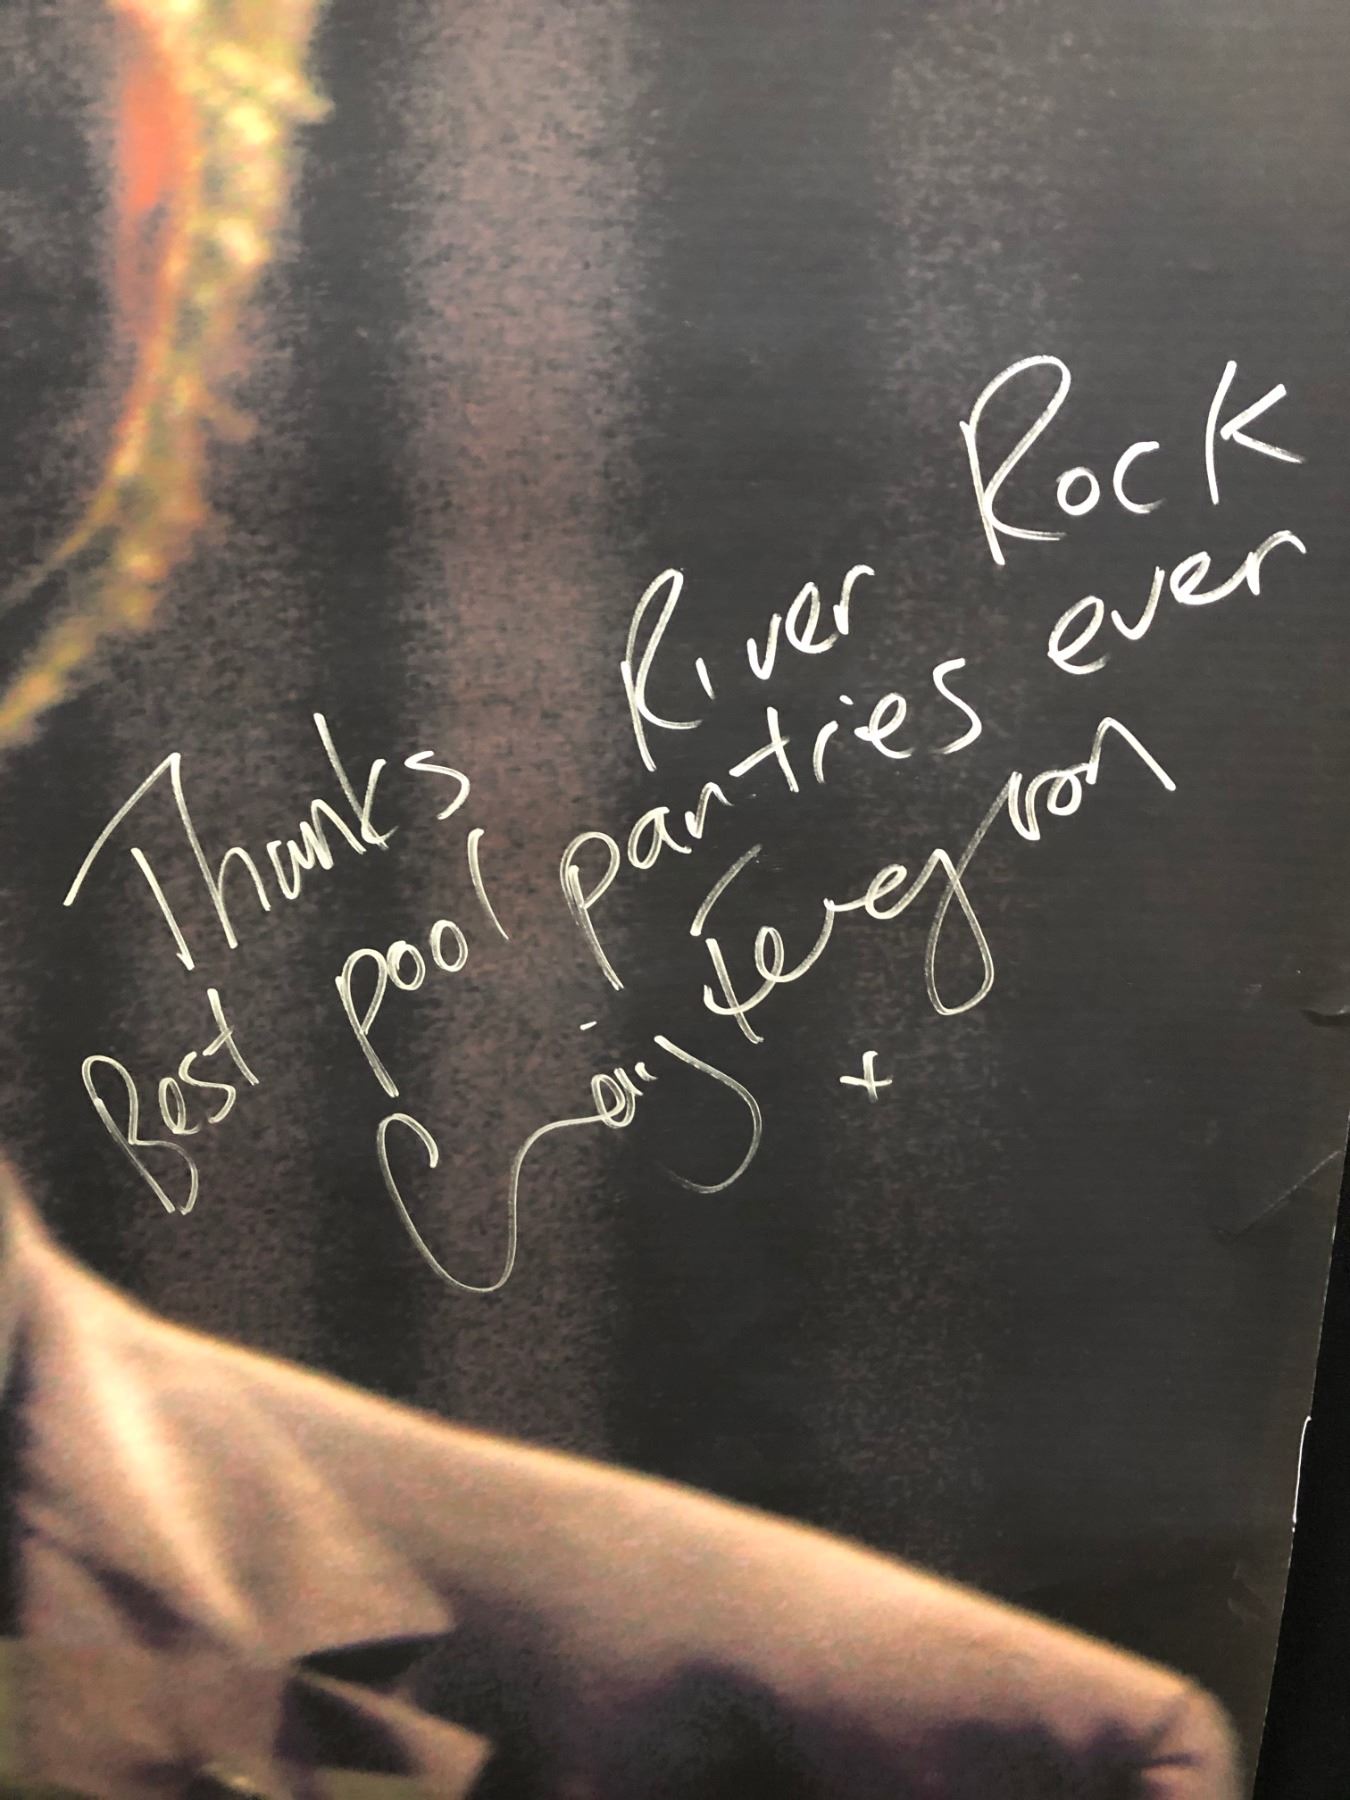 Thanks River Rock
Best pool pantries ever
Craig Ferguson
+